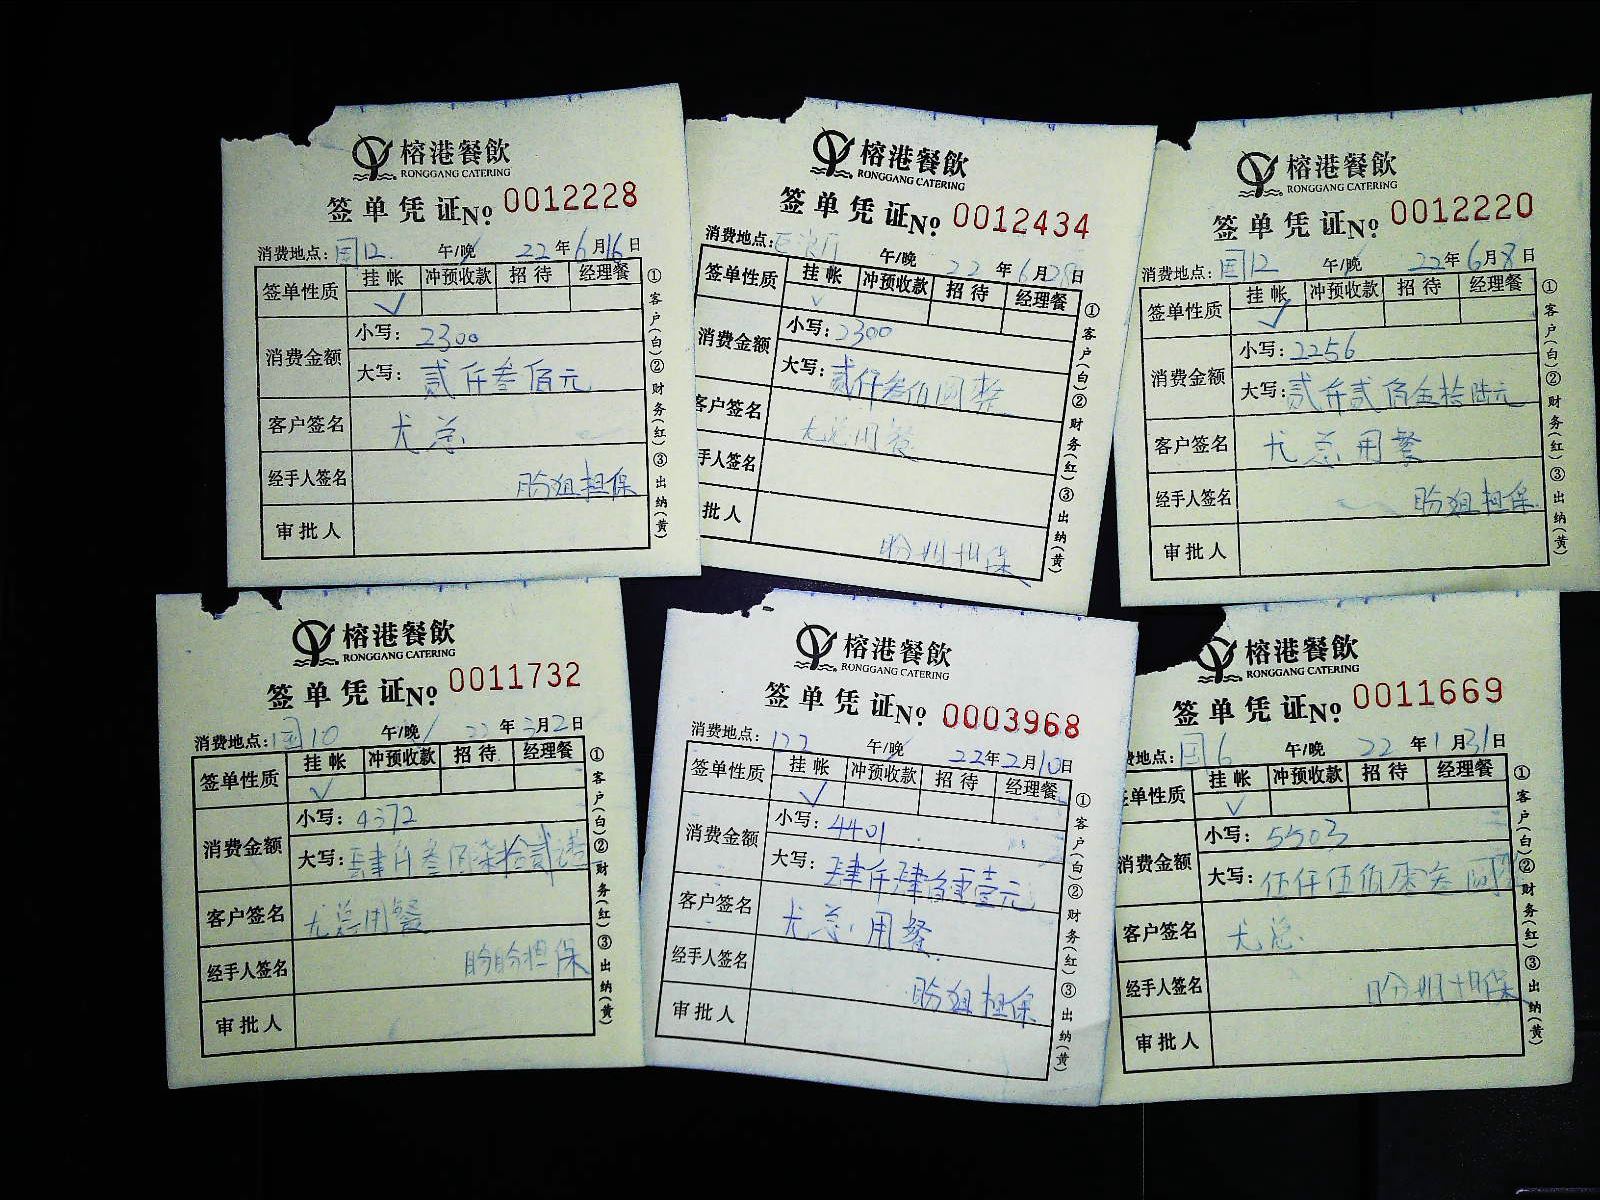 榕港餐飲
RONGGANG CATERING
签单凭证 No 0012228
消费地点: 国12 午/晚 22年6月16日
签单性质 挂帐 冲预收款 招待 经理餐
✓
消费金额 小写: 2300
大写: 贰仟叁佰元
客户签名 尤总
经手人签名 盼姐担保
审批人
①客户(白)②财务(红)③出纳(黄)
榕港餐飲
RONGGANG CATERING
签单凭证 No 0012434
消费地点: 午/晚 22年6月28日
签单性质 挂帐 冲预收款 招待 经理餐
✓
消费金额 小写: 2300
大写: 贰仟叁佰圆整
客户签名 尤总用餐
手人签名
批人 盼姐担保
①客户(白)②财务(红)③出纳(黄)
榕港餐飲
RONGGANG CATERING
签单凭证 No 0012220
消费地点: 国12 午/晚 22年6月8日
签单性质 挂帐 冲预收款 招待 经理餐
✓
消费金额 小写: 2256
大写: 贰仟贰佰伍拾陆元
客户签名 尤总用餐
经手人签名 盼姐担保
审批人
①客户(白)②财务(红)③出纳(黄)
榕港餐飲
RONGGANG CATERING
签单凭证 No 0011732
消费地点: 国10 午/晚 22年3月2日
签单性质 挂帐 冲预收款 招待 经理餐
✓
消费金额 小写: 4372
大写: 肆仟叁佰柒拾贰
客户签名 尤总用餐
经手人签名 盼盼担保
审批人
①客户(白)②财务(红)③出纳(黄)
榕港餐飲
RONGGANG CATERING
签单凭证 No 0003968
消费地点: 122 午/晚 22年2月10日
签单性质 挂帐 冲预收款 招待 经理餐
✓
消费金额 小写: 4401
大写: 肆仟肆佰零壹元
客户签名 尤总用餐
经手人签名 盼姐担保
审批人
①客户(白)②财务(红)③出纳(黄)
榕港餐飲
RONGGANG CATERING
签单凭证 No 0011669
费地点: 国6 午/晚 22年1月31日
单性质 挂帐 冲预收款 招待 经理餐
✓
消费金额 小写: 5503
大写: 伍仟伍佰零叁圆
客户签名 尤总
经手人签名 盼姐担保
审批人
①客户(白)②财务(红)③出纳(黄)